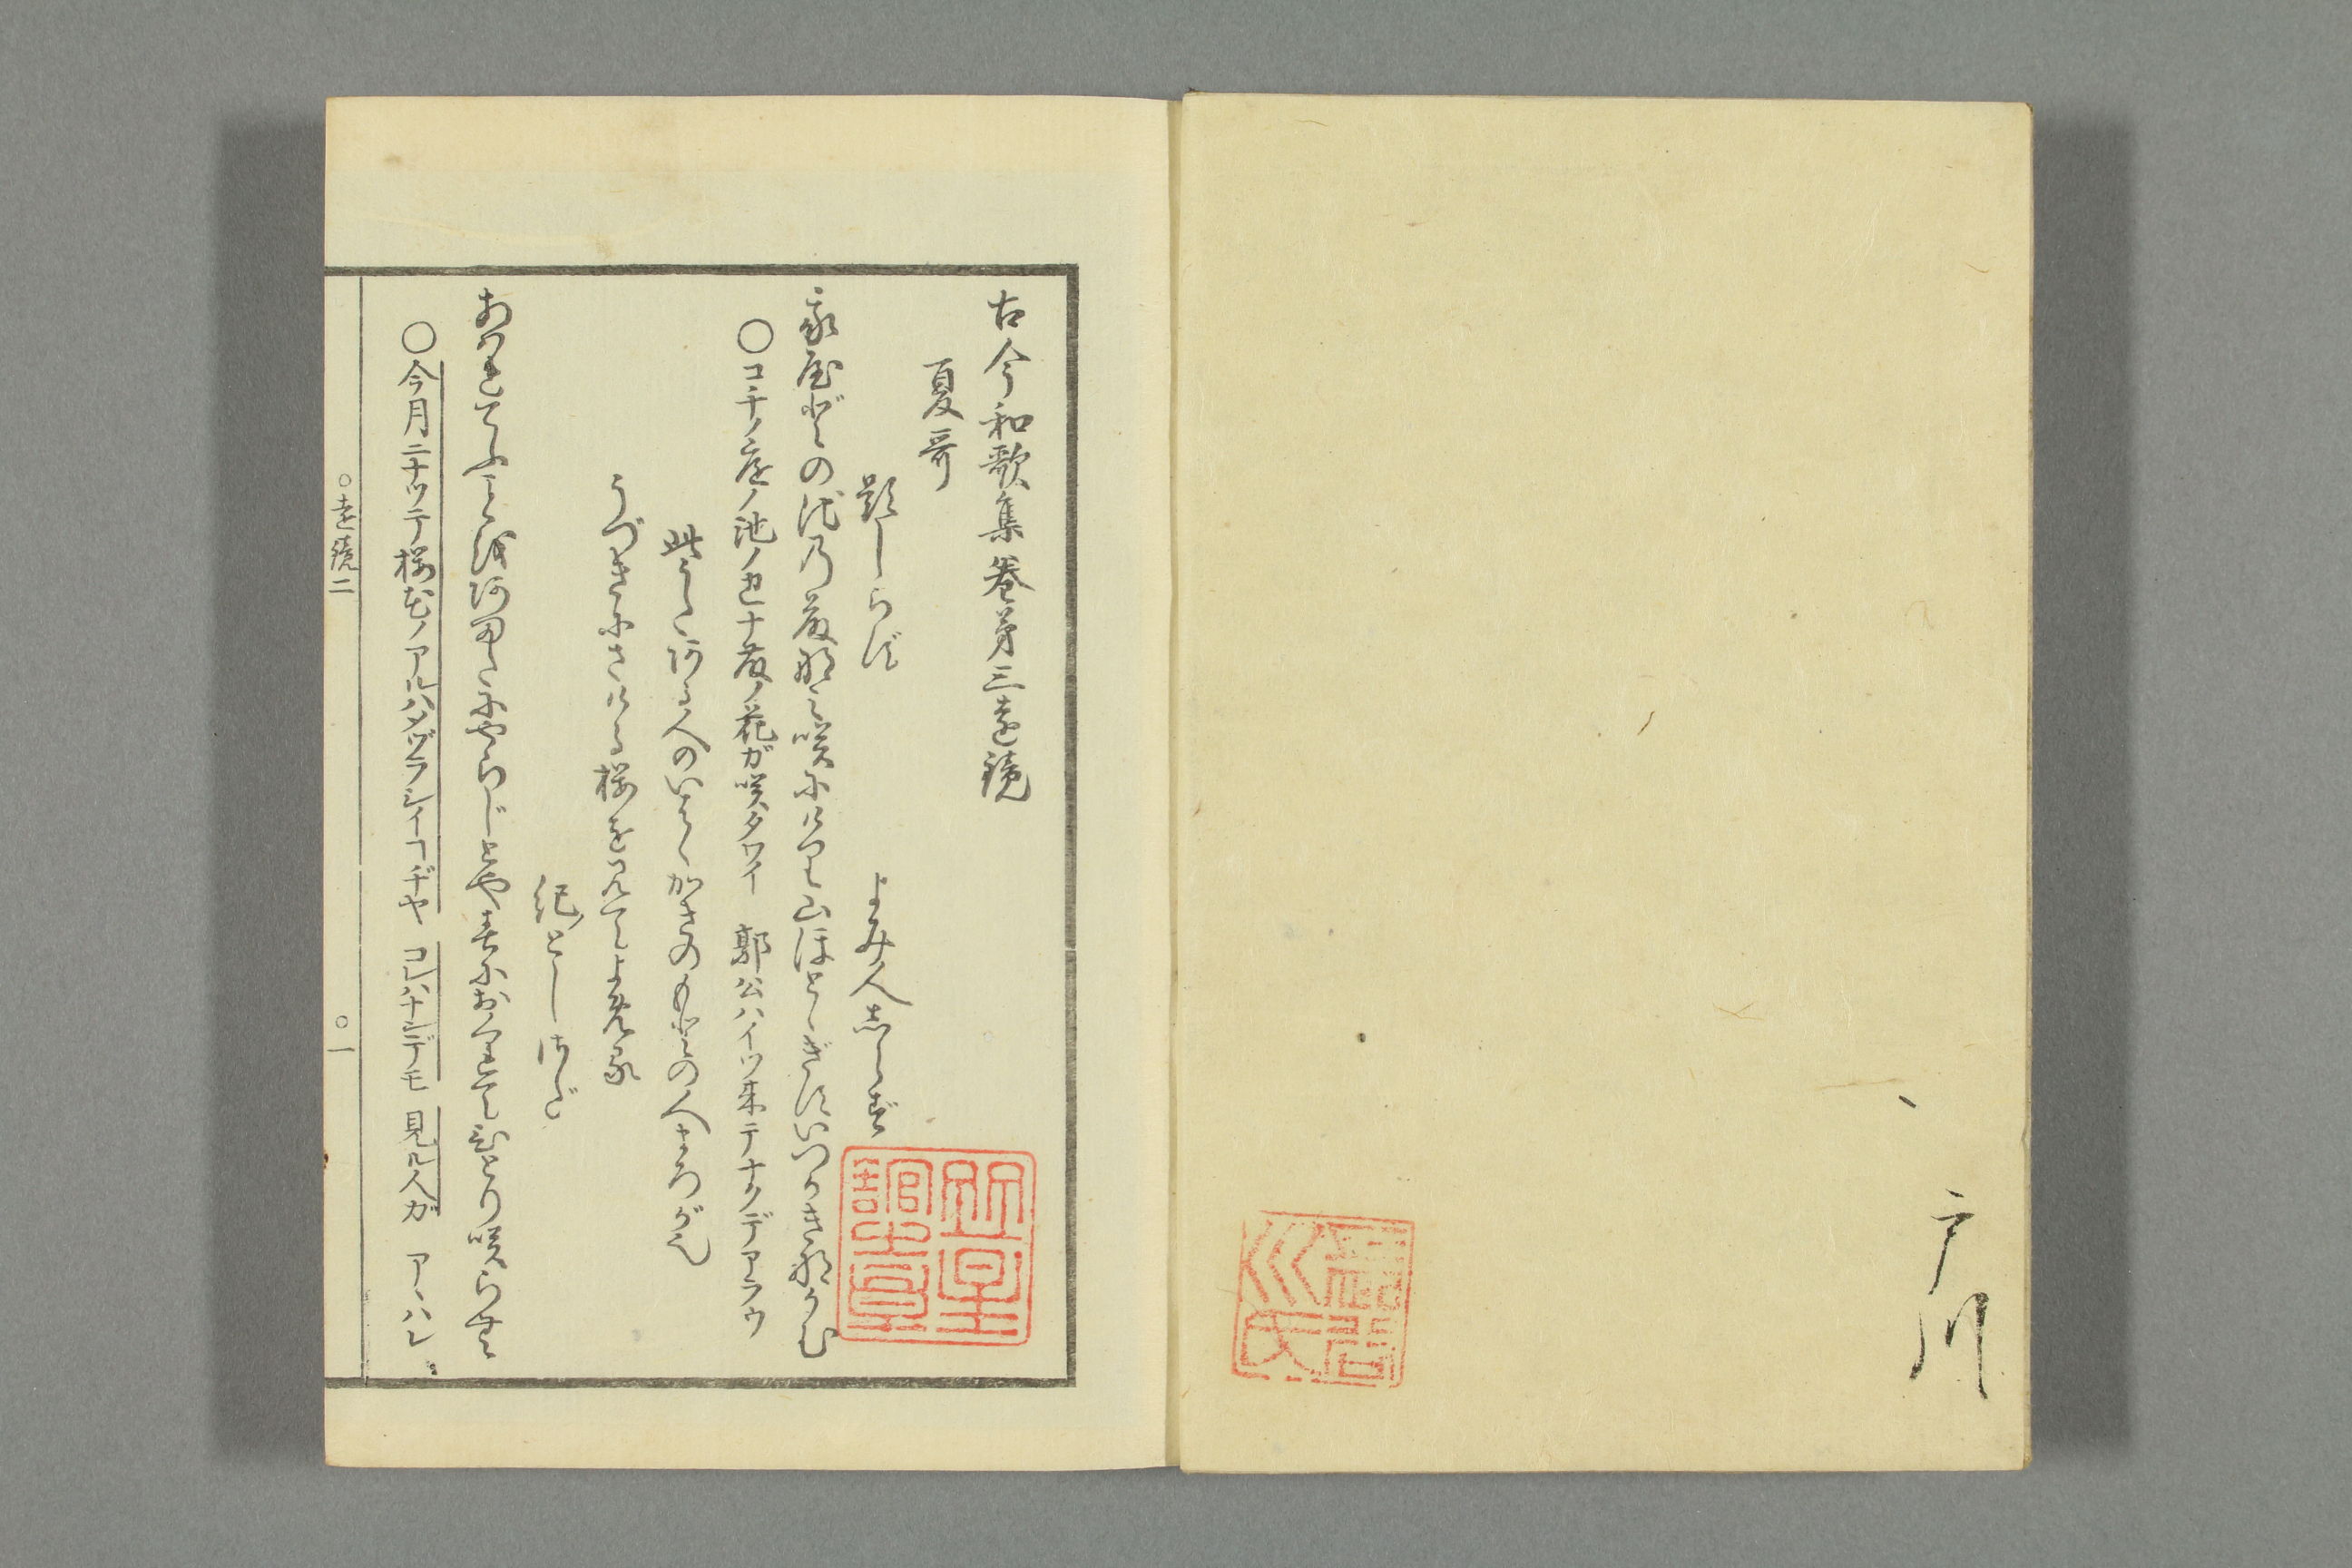 戸川
古今和歌集巻第三遠鏡
夏哥
題しらず
よみ人しらず
我やどの池の藤なみ咲にけり山ほとゝぎすいつかきなかむ
○コチノ庭ノ池ノ色ナ藤ノ花ガ咲タワイ 郭公ハイツ来テナクデアラウ
此うたある人のいはくかきのもとの人まろが也
うづきにさける桜を見てよめる
紀としさだ
あはれてふことをあまたにやらじとや春におくれてひとり咲らむ
○今月ニナツテ桜花ノアルハメヅラシイコヂヤ コレハナンデモ 見ル人ガ アヽハレ
○遠鏡二
○一